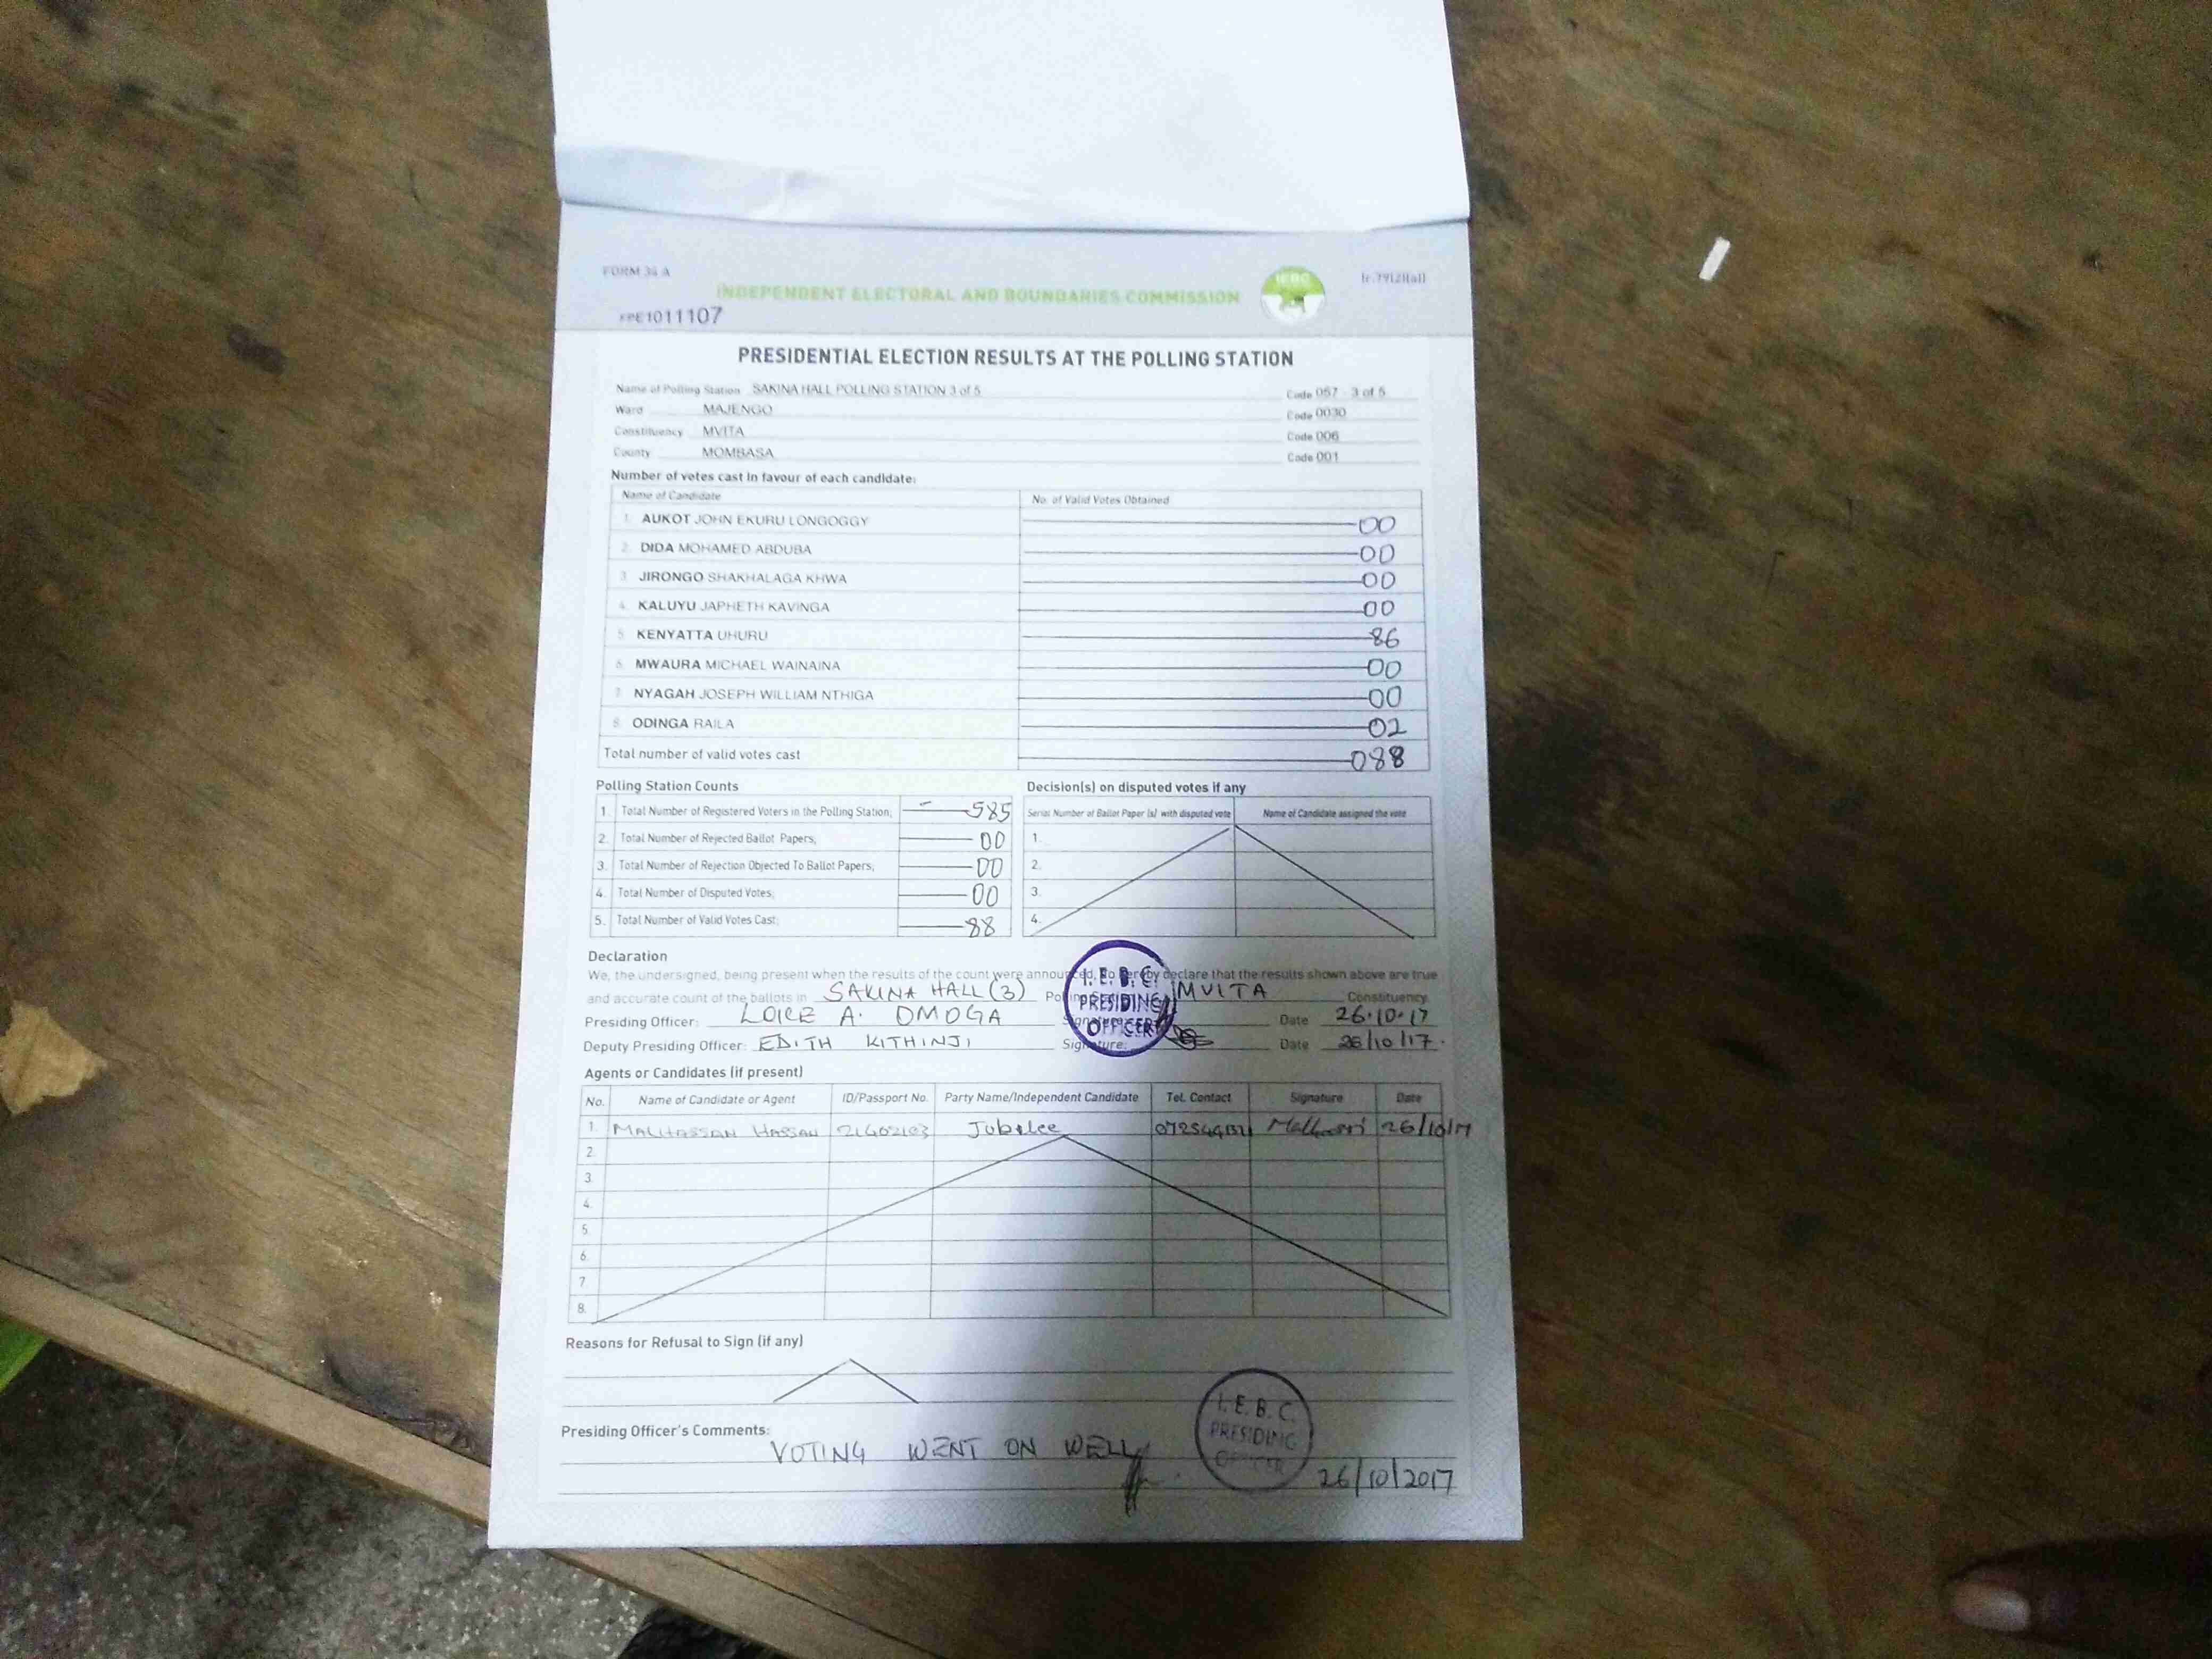 FORM 34 A
INDEPENDENT ELECTORAL AND BOUNDARIES COMMISSION
IEBC
PRESIDENTIAL ELECTION RESULTS AT THE POLLING STATION
Name of Polling Station SAKINA HALL POLLING STATION 3 of 5 Code 057 - 3 of 5
Ward MAJENGO Code 0030
Constituency MVITA Code 006
County MOMBASA Code 001
Number of votes cast in favour of each candidate:
Name of Candidate No. of Valid Votes Obtained
1. AUKOT JOHN EKURU LONGOGGY 00
2. DIDA MOHAMED ABDUBA 00
3. JIRONGO SHAKHALAGA KHWA 00
4. KALUYU JAPHETH KAVINGA 00
5. KENYATTA UHURU 86
6. MWAURA MICHAEL WAINAINA 00
7. NYAGAH JOSEPH WILLIAM NTHIGA 00
8. ODINGA RAILA 02
Total number of valid votes cast 088
Polling Station Counts
1. Total Number of Registered Voters in the Polling Station; 585
2. Total Number of Rejected Ballot Papers; 00
3. Total Number of Rejection Objected To Ballot Papers; 00
4. Total Number of Disputed Votes; 00
5. Total Number of Valid Votes Cast; 88
Decision(s) on disputed votes if any
Serial Number of Ballot Paper (s) with disputed vote Name of Candidate assigned the vote
1.
2.
3.
4.
Declaration
We, the undersigned, being present when the results of the count were announced, do hereby declare that the results shown above are true
and accurate count of the ballots in SAKINA HALL (3) Polling MVITA Constituency.
Presiding Officer: LOICE A. OMOGA Signature: Date 26.10.17
Deputy Presiding Officer: EDITH KITHINJI Signature: Date 26/10/17.
I.E.B.C.
PRESIDING
OFFICER
Agents or Candidates (if present)
No. Name of Candidate or Agent ID/Passport No. Party Name/Independent Candidate Tel. Contact Signature Date
1. HASSAN Jubilee 26/10/17
2.
3.
4.
5.
6.
7.
8.
Reasons for Refusal to Sign (if any)
Presiding Officer's Comments:
VOTING WENT ON WELL
I.E.B.C.
PRESIDING
OFFICER
26/10/2017